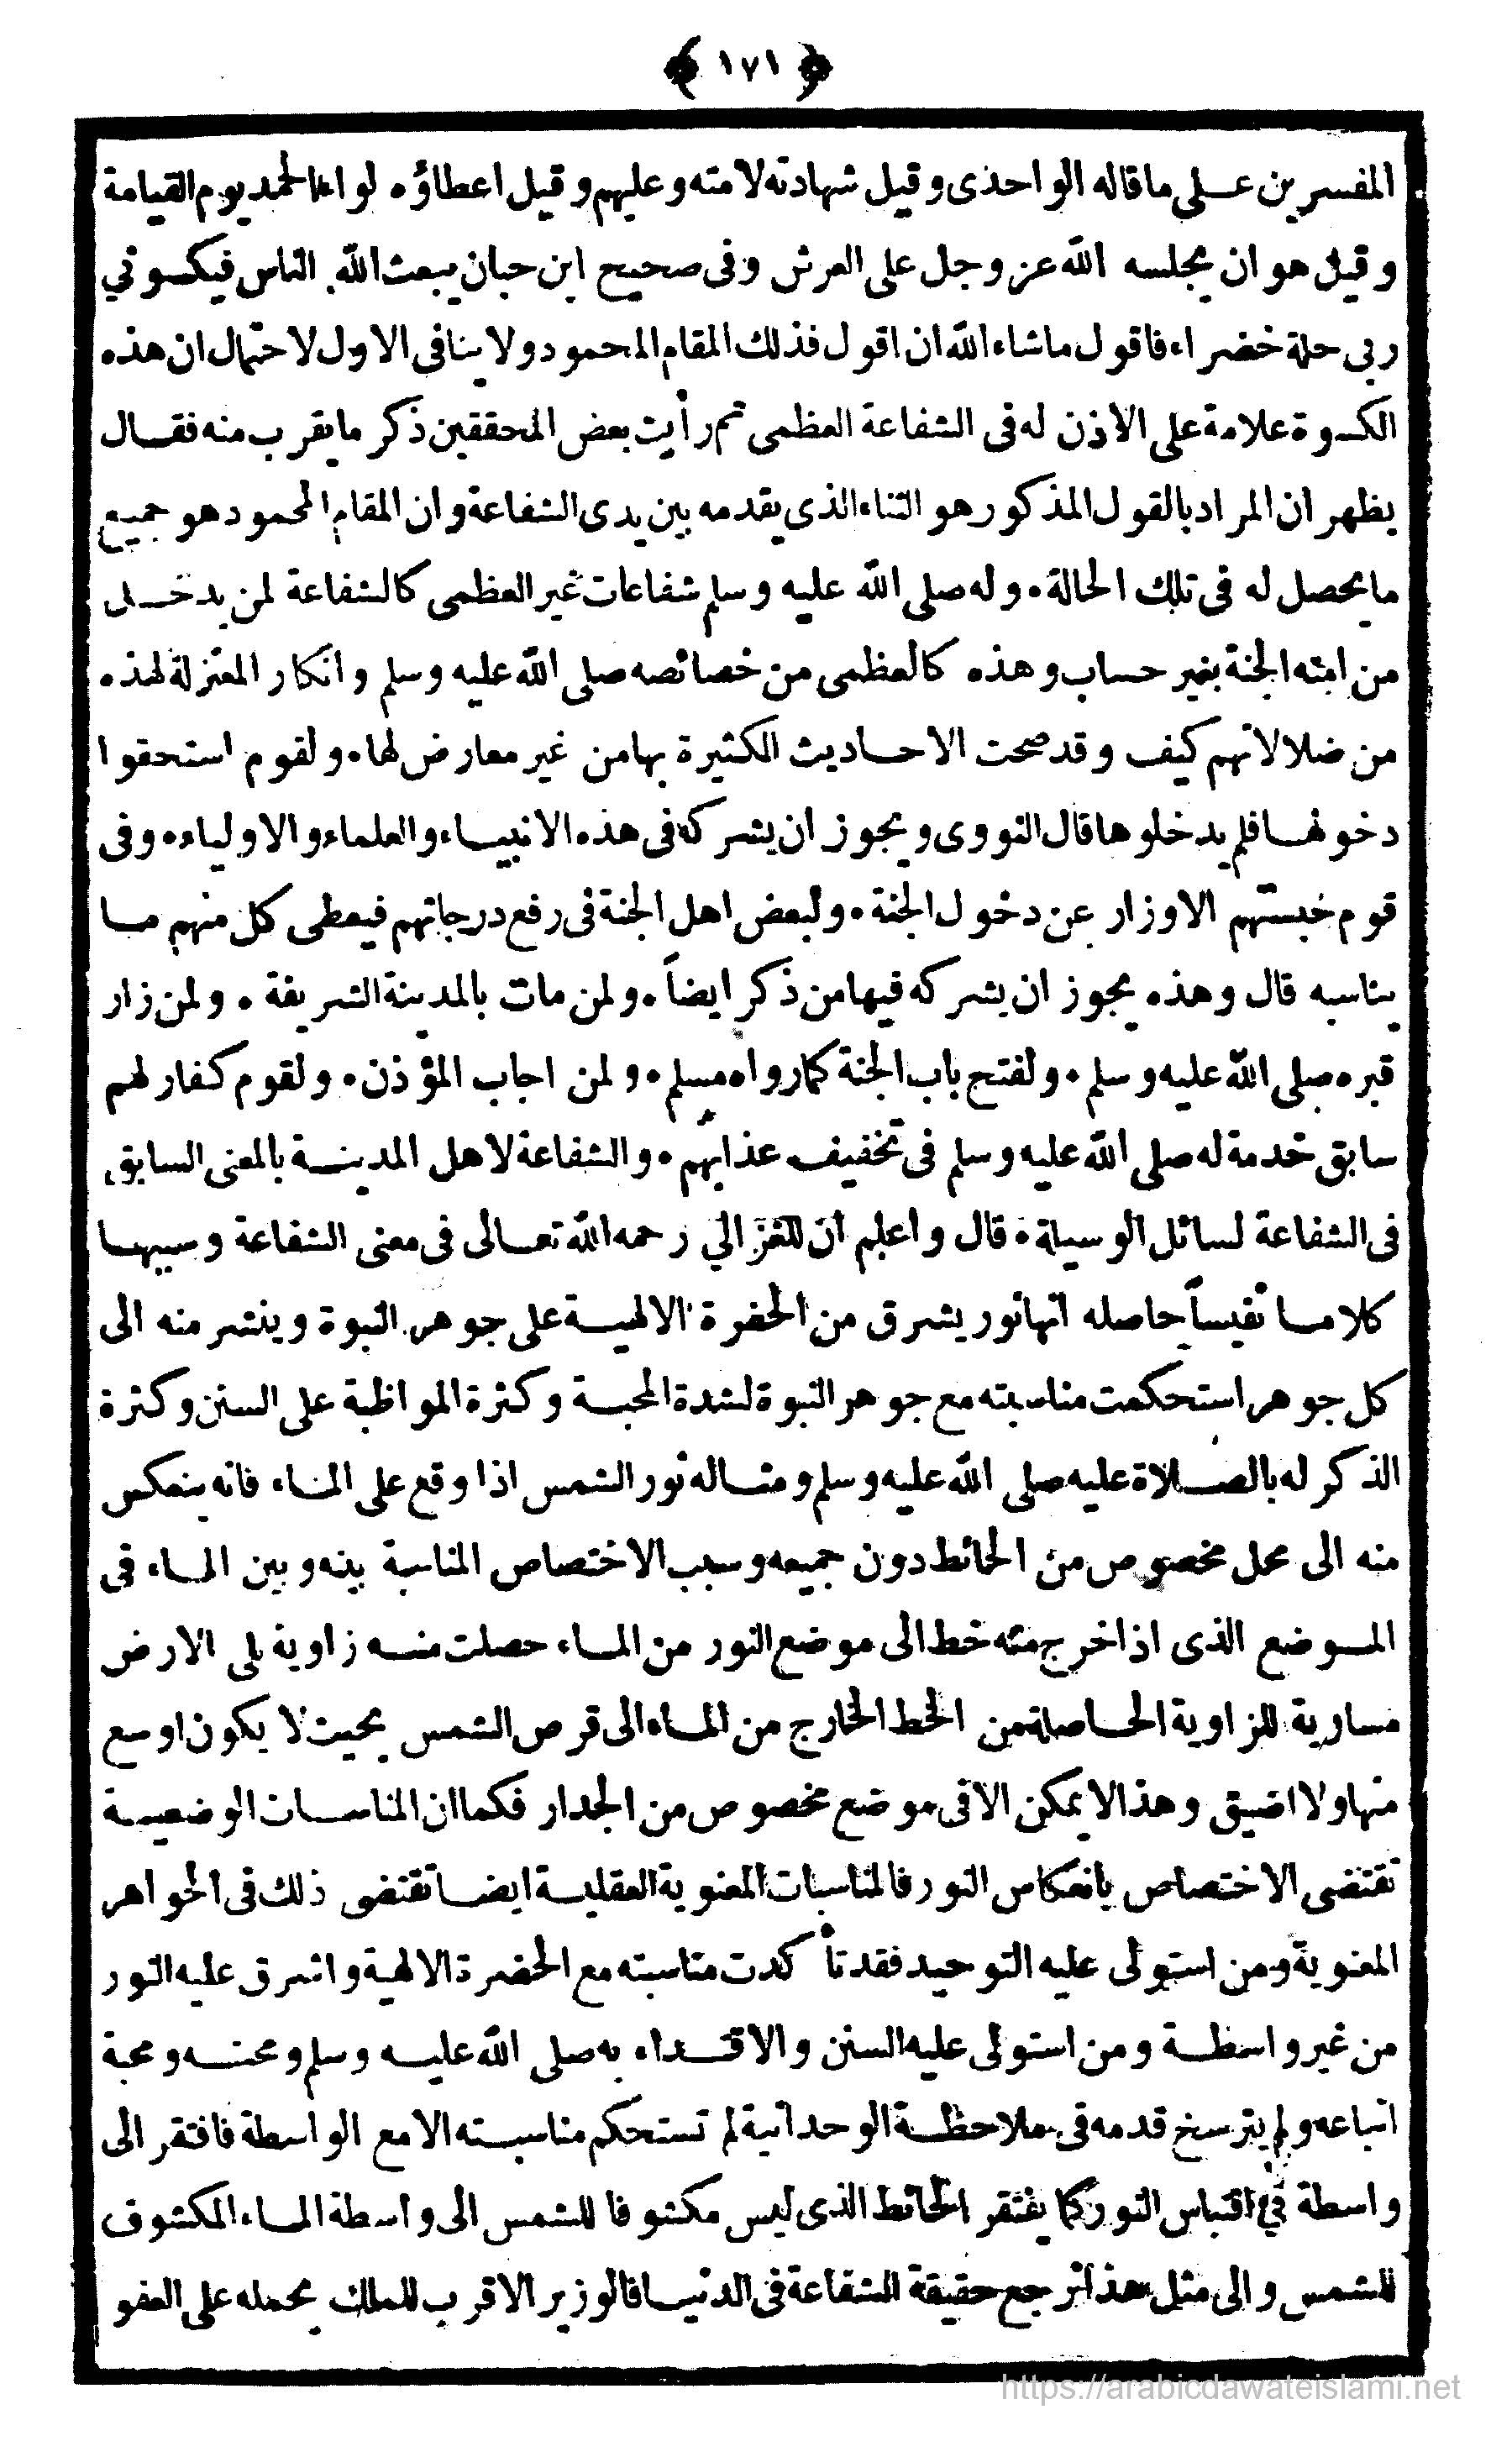 ﴿ ١٧١ ﴾
المفسرين على ما قاله الواحدى وقيل شهادته لامته وعليهم وقيل اعطاؤه لواء الحمد يوم القيامة
وقيل هو ان يجلسه الله عز وجل على العرش وفى صحيح ابن حبان يبعث الله الناس فيكسونى
ربى حلة خضراء فاقول ماشاء الله ان اقول فذلك المقام المحمود ولا ينافى الاول لاحتمال ان هذه
الكسوة علامة على الاذن له فى الشفاعة العظمى ثم رأيت بعض المحققين ذكر ما يقرب منه فقال
يظهر ان المراد بالقول المذكور هو الثناء الذى يقدمه بين يدى الشفاعة وان المقام المحمود هو جميع
ما يحصل له فى تلك الحالة • وله صلى الله عليه وسلم شفاعات غير العظمى كالشفاعة لمن يدخل
من امته الجنة بغير حساب وهذه كالعظمى من خصائصه صلى الله عليه وسلم وانكار المعتزلة لهذه
من ضلالاتهم كيف وقد صحت الاحاديث الكثيرة بها من غير معارض لها • ولقوم استحقوا
دخولها فلم يدخلوها قال النووى ويجوز ان يشركه فى هذه الانبياء والعلماء والاولياء • وفى
قوم حبستهم الاوزار عن دخول الجنة • ولبعض اهل الجنة فى رفع درجاتهم فيعطى كل منهم ما
يناسبه قال وهذه يجوز ان يشركه فيها من ذكر ايضاً • ولمن مات بالمدينة الشريفة • ولمن زار
قبره صلى الله عليه وسلم • ولفتح باب الجنة كما رواه مسلم • ولمن اجاب المؤذن • ولقوم كفار لهم
سابق خدمة له صلى الله عليه وسلم فى تخفيف عذابهم • والشفاعة لاهل المدينة بالمعنى السابق
فى الشفاعة لسائل الوسيلة • قال واعلم ان للغزالي رحمه الله تعالى فى معنى الشفاعة وسببها
كلاما نفيساً حاصله انها نور يشرق من الحضرة الالهية على جوهر النبوة وينتشر منه الى
كل جوهر استحكمت مناسبته مع جوهر النبوة لشدة المحبة وكثرة المواظبة على السنن وكثرة
الذكر له بالصلاة عليه صلى الله عليه وسلم ومثاله نور الشمس اذا وقع على الماء فانه ينعكس
منه الى محل مخصوص من الحائط دون جميعه وسبب الاختصاص المناسبة بينه وبين الماء فى
الموضع الذى اذا خرج منه خط الى موضع النور من الماء حصلت منه زاوية يلى الارض
مساوية للزاوية الحاصلة من الخط الخارج من الماء الى قرص الشمس بحيث لا يكون اوسع
منها ولا اضيق وهذا لا يمكن الا فى موضع مخصوص من الجدار فكما ان المناسبات الوضعية
تقتضى الاختصاص بانعكاس النور فالمناسبات المعنوية العقلية ايضا تقتضى ذلك فى الجواهر
المعنوية ومن استولى عليه التوحيد فقد تأكدت مناسبته مع الحضرة الالهية واشرق عليه النور
من غير واسطة ومن استولى عليه السنن والاقتداء به صلى الله عليه وسلم ومحبته ومحبة
اتباعه ولم يترسخ قدمه فى ملاحظة الوحدانية لم تستحكم مناسبته الا مع الواسطة فافتقر الى
واسطة في اقتباس النور كما يفتقر الحائط الذى ليس مكشوفا للشمس الى واسطة الماء المكشوف
للشمس والى مثل هذا ترجع حقيقة الشفاعة فى الدنيا فالوزير الاقرب للملك يحمله على العفو
https://arabicdawateislami.net